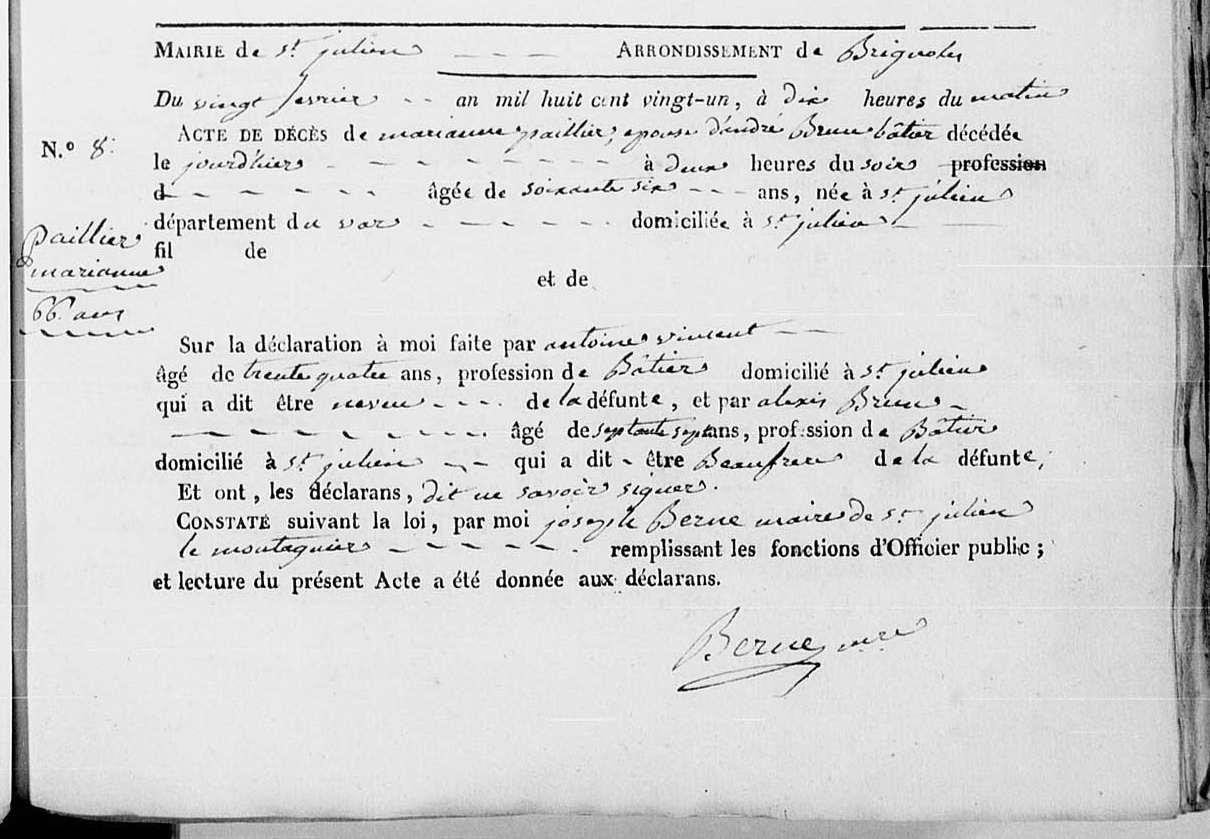 MAIRIE de st julien ARRONDISSEMENT de Brignoles
Du vingt fevrier an mil huit cent vingt-un, à dix heures du matin
N.º 8. ACTE DE DÉCÈS de marianne paillier, epouse d'andré Brun bâtier décédée
le jourd'hier à deux heures du soir profession
d âgée de soixante six ans, née à st julien
département du var domiciliée à st julien
paillier
marianne
66 ans
fil de
et de
Sur la déclaration à moi faite par antoine vincent
âgé de trente quatre ans, profession de Bâtier domicilié à st julien
qui a dit être neveu de la défunte, et par alexis Brun
âgé de septante sept ans, profession de Bâtier
domicilié à st julien qui a dit être Beaufrere de la défunte,
Et ont, les déclarans, dit ne savoir signer.
CONSTATÉ suivant la loi, par moi joseph Berne maire de st julien
le montagnier remplissant les fonctions d'Officier public ;
et lecture du présent Acte a été donnée aux déclarans.
Berne, mre